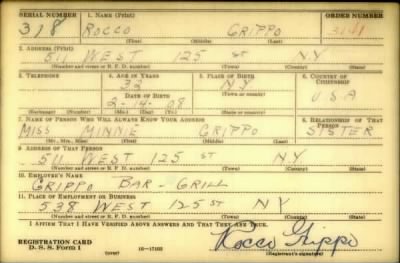 SERIAL NUMBER 1. NAME (Print) ORDER NUMBER
318 ROCCO GRIPPO 3141
(First) (Middle) (Last)
2. ADDRESS (Print)
511 WEST 125 ST NY
(Number and street or R. F. D. number) (Town) (County) (State)
3. TELEPHONE 4. AGE IN YEARS 5. PLACE OF BIRTH 6. COUNTRY OF CITIZENSHIP
32 NY
DATE OF BIRTH (Town or county) USA
2-14-08
(Exchange) (Number) (Mo.) (Day) (Yr.) (State or country)
7. NAME OF PERSON WHO WILL ALWAYS KNOW YOUR ADDRESS 8. RELATIONSHIP OF THAT PERSON
MISS MINNIE GRIPPO SISTER
(Mr., Mrs., Miss) (First) (Middle) (Last)
9. ADDRESS OF THAT PERSON
511 WEST 125 ST NY
(Number and street or R. F. D. number) (Town) (County) (State)
10. EMPLOYER'S NAME
GRIPPO BAR - GRILL
11. PLACE OF EMPLOYMENT OR BUSINESS
538 WEST 125 ST NY
(Number and street or R. F. D. number) (Town) (County) (State)
I AFFIRM THAT I HAVE VERIFIED ABOVE ANSWERS AND THAT THEY ARE TRUE.
REGISTRATION CARD Rocco Grippo
D. S. S. Form 1 (over) 16-17105 (Registrant's signature)